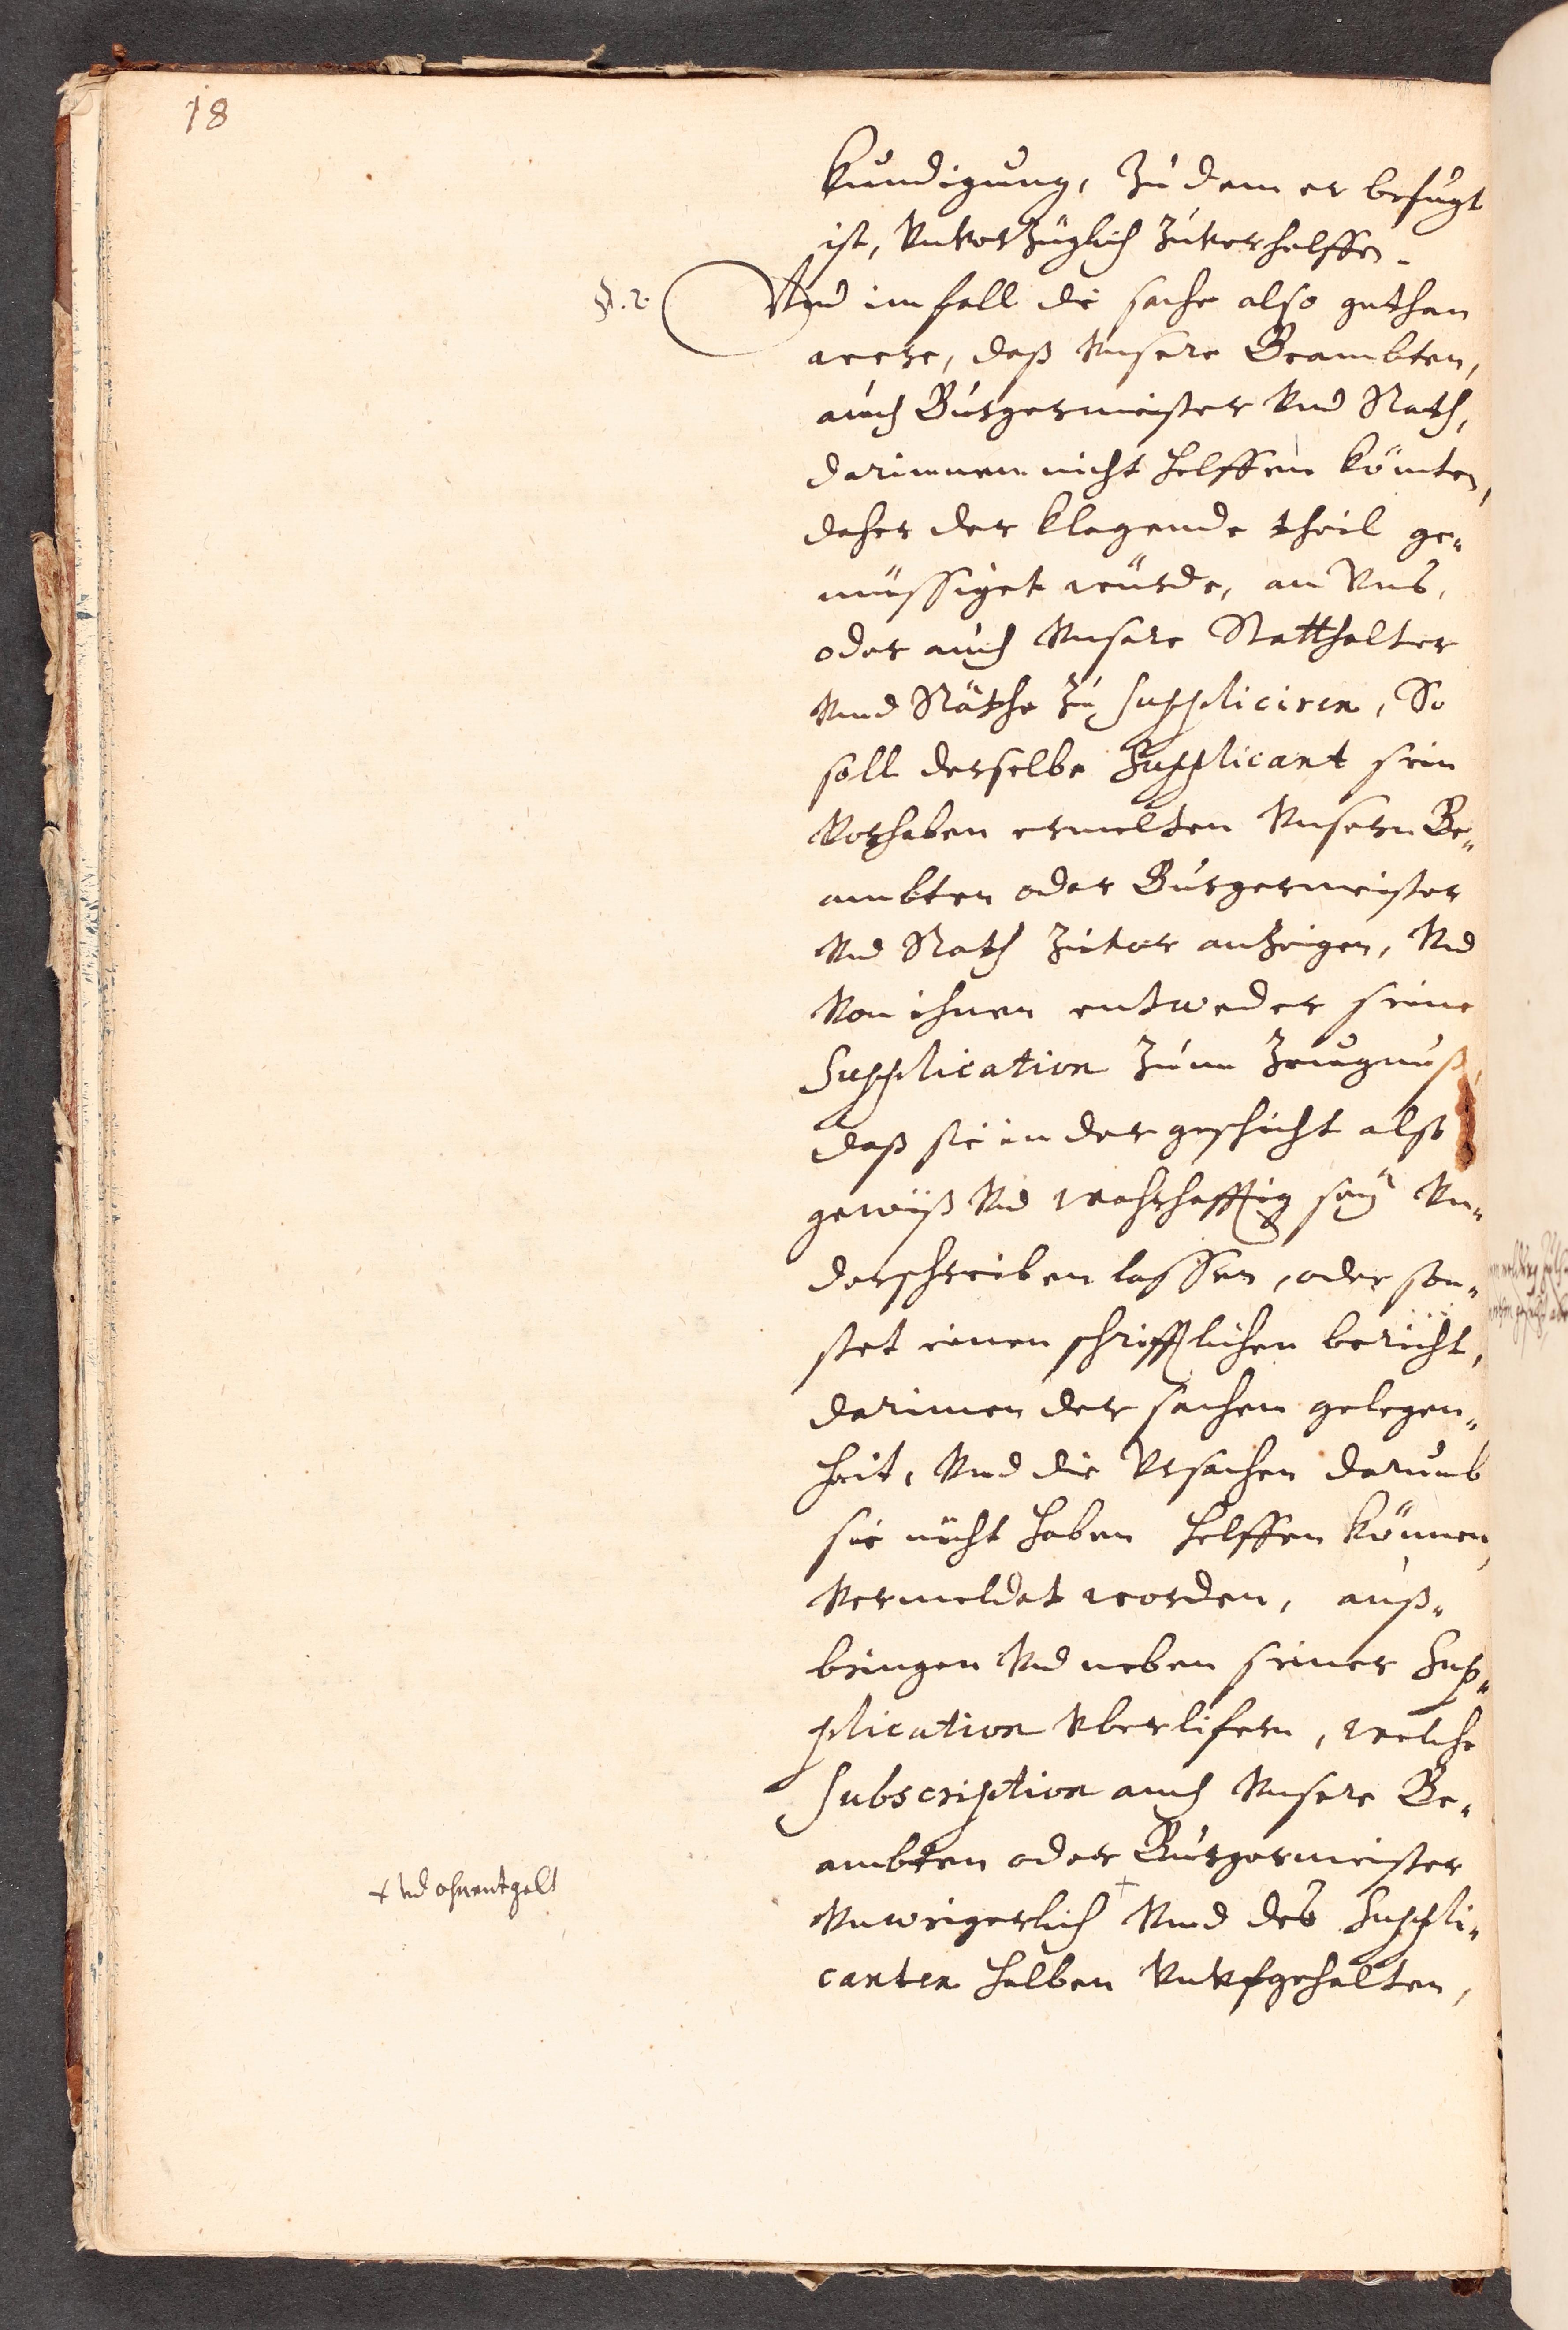 18
kundigung, zu dem er befugt
ist, vnverzüglich zuverhelffen.
§. 2.
Vnd im fall die sache also gethan
were, daß Vnsere Beambten,
auch Bürgermeister Vnd Rath,
darinnen nicht helffen könten,
daher der klagende theil ge„
müssiget würde, an Vns,
oder auch Vnsere Statthalter
Vnd Räthe zu suppliciren, So
soll derselbe Supplicant sein
Vorhaben ermelten Vnsern Be„
ambten oder Bürgermeister
Vnd Rath zuvor anzeigen, Vnd
Von ihnen entweder seine
Supplication zum Zeugnuß,
daß sie in der geschicht also
gewiß Vnd wahrhafftig seÿ Vn„
derschreiben lassen, oder son„
stet einen schrifftlichen bericht,
darinnen der sachen gelegen„
heit, Vnd die Vrsachen darumb
sie nicht haben helffen können,
Vermeldet worden, auß„
bringen Vnd neben seiner Sup„
plication Vberlifern, welche
Subscription auch Vnsere Be„
ambten oder Bürgermeister
Vnweigerlich + Vnd des Suppli„
canten halben Vnvfgehalten,
+ Vnd ohnentgelt